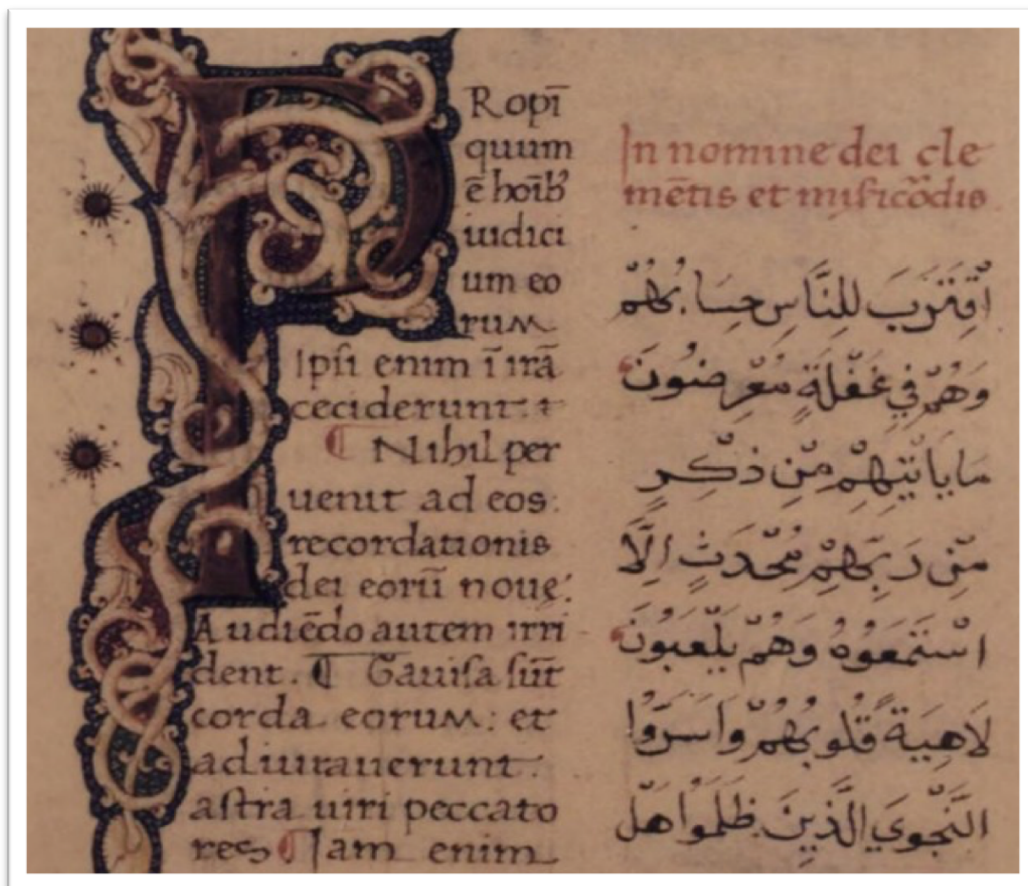 PRopī
quum
ē hoīb᷒
iudici
um eo
rum
Ipsi enim ī irā
ceciderunt: ⁊
¶ Nihil per
uenit ad eos:
recordationis
dei eorū noue:
Audiēdo autem irri
dent. ¶ Gauisa sūt
corda eorum: et
adiurauerunt:
astra uiri peccato
res ¶ Iam enim
In nomine dei cle
mētis et misicōdis
اَقْتَرَبَ لِلنَّاسِ حِسَابُهُمْ
وَهُمْ فِي غَفْلَةٍ مُعْرِضُونَ
مَا يَاتِيهِمْ مِن ذِكْرٍ
مِن رَبِّهِمْ مُحْدَثٍ اِلَّا
اسْتَمَعُوهُ وَهُمْ يَلْعَبُونَ
لَاهِيَةً قُلُوبُهُمْ وَاَسَرُّوا
النَّجْوَي الَّذِينَ ظَلَمُوا هَلْ